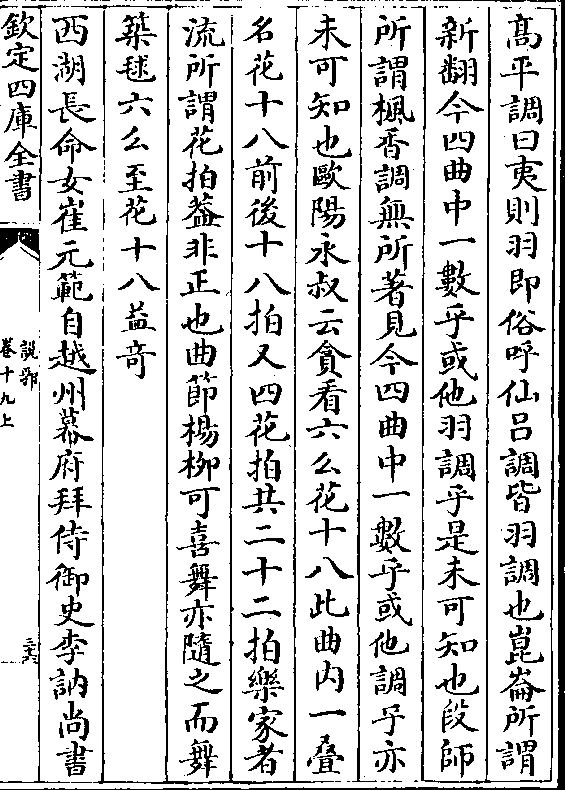 高平調曰夷則羽即俗呼仙呂調皆羽調也崑崙所謂
新翻今四曲中一數乎或他羽調乎是未可知也段師
所謂楓香調無所著見今四曲中一數乎或他調乎亦
未可知也歐陽永叔云貪看六么花十八此曲内一疊
名花十八前後十八拍又四花拍共二十二拍樂家者
流所謂花拍葢非正也曲節楊栁可喜舞亦隨之而舞
築毬六么至花十八益竒
西湖長命女崔元範自越州幕府拜侍御史李訥尚書
欽定四庫全書
說郛
卷十九上
三六